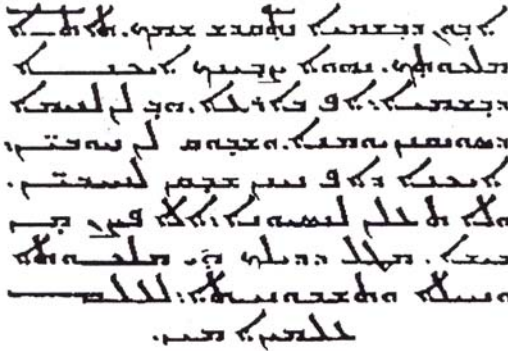 ܐܒܘܢ ܕܒܫܡܝܐ ܢܬܩܕܫ ܫܡܟ. ܬܐܬܐ
ܡܠܟܘܬܟ. ܢܗܘܐ ܨܒܝܢܟ ܐܝܟܢܐ
ܕܒܫܡܝܐ: ܐܦ ܒܐܪܥܐ. ܗܒ ܠܢ ܠܚܡܐ
ܕܣܘܢܩܢܢ ܝܘܡܢܐ. ܘܫܒܘܩ ܠܢ ܚܘܒ̈ܝܢ.
ܐܝܟܢܐ ܕܐܦ ܚܢܢ ܫܒܩܢ ܠܚܝ̈ܒܝܢ.
ܘܠܐ ܬܥܠܢ ܠܢܣܝܘܢܐ: ܐܠܐ ܦܨܢ ܡܢ
ܒܝܫܐ. ܡܛܠ ܕܕܝܠܟ ܗܝ ܡܠܟܘܬܐ
ܘܚܝܠܐ ܘܬܫܒܘܚܬܐ: ܠܥܠܡ
ܥܠܡܝܢ ܐܡܝܢ.